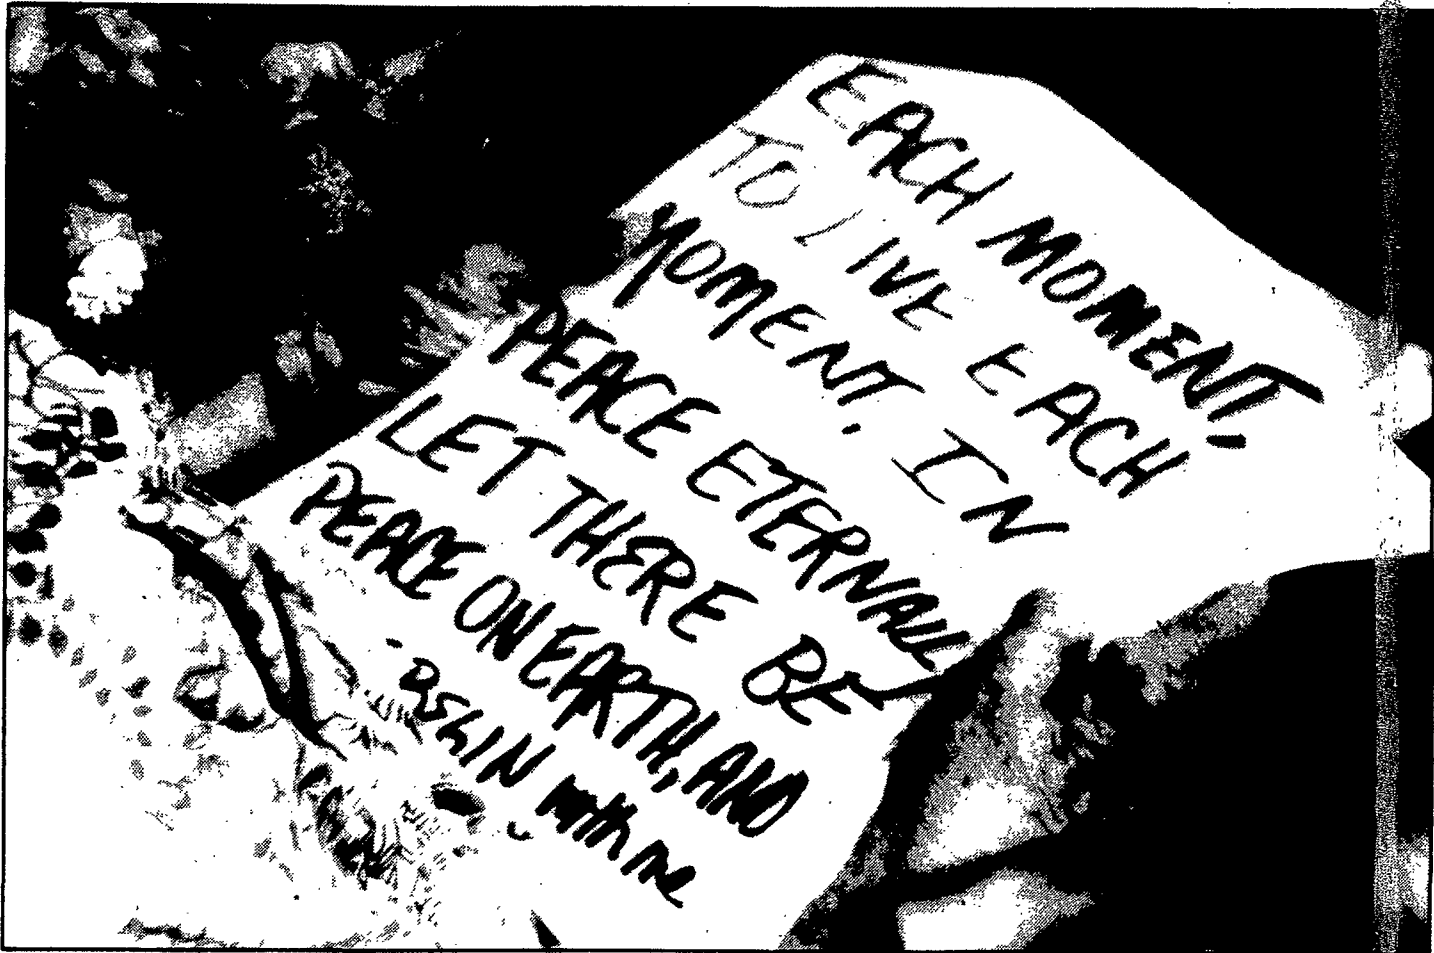 EACH MOMENT,
TO LIVE EACH
MOMENT, IN
PEACE ETERNALLY
LET THERE BE
PEACE ON EARTH, AND
- BEGIN with me